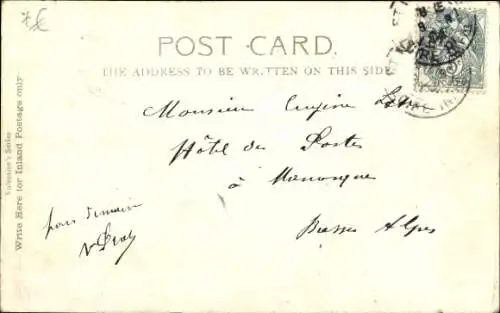 POST CARD.
THE ADDRESS TO BE WRITTEN ON THIS SIDE
Valentine's Series
Write Here (for Inland Postage only
Monsieur Eugène
Hôtel des Postes
à Manosque
Basses Alpes
pour demain